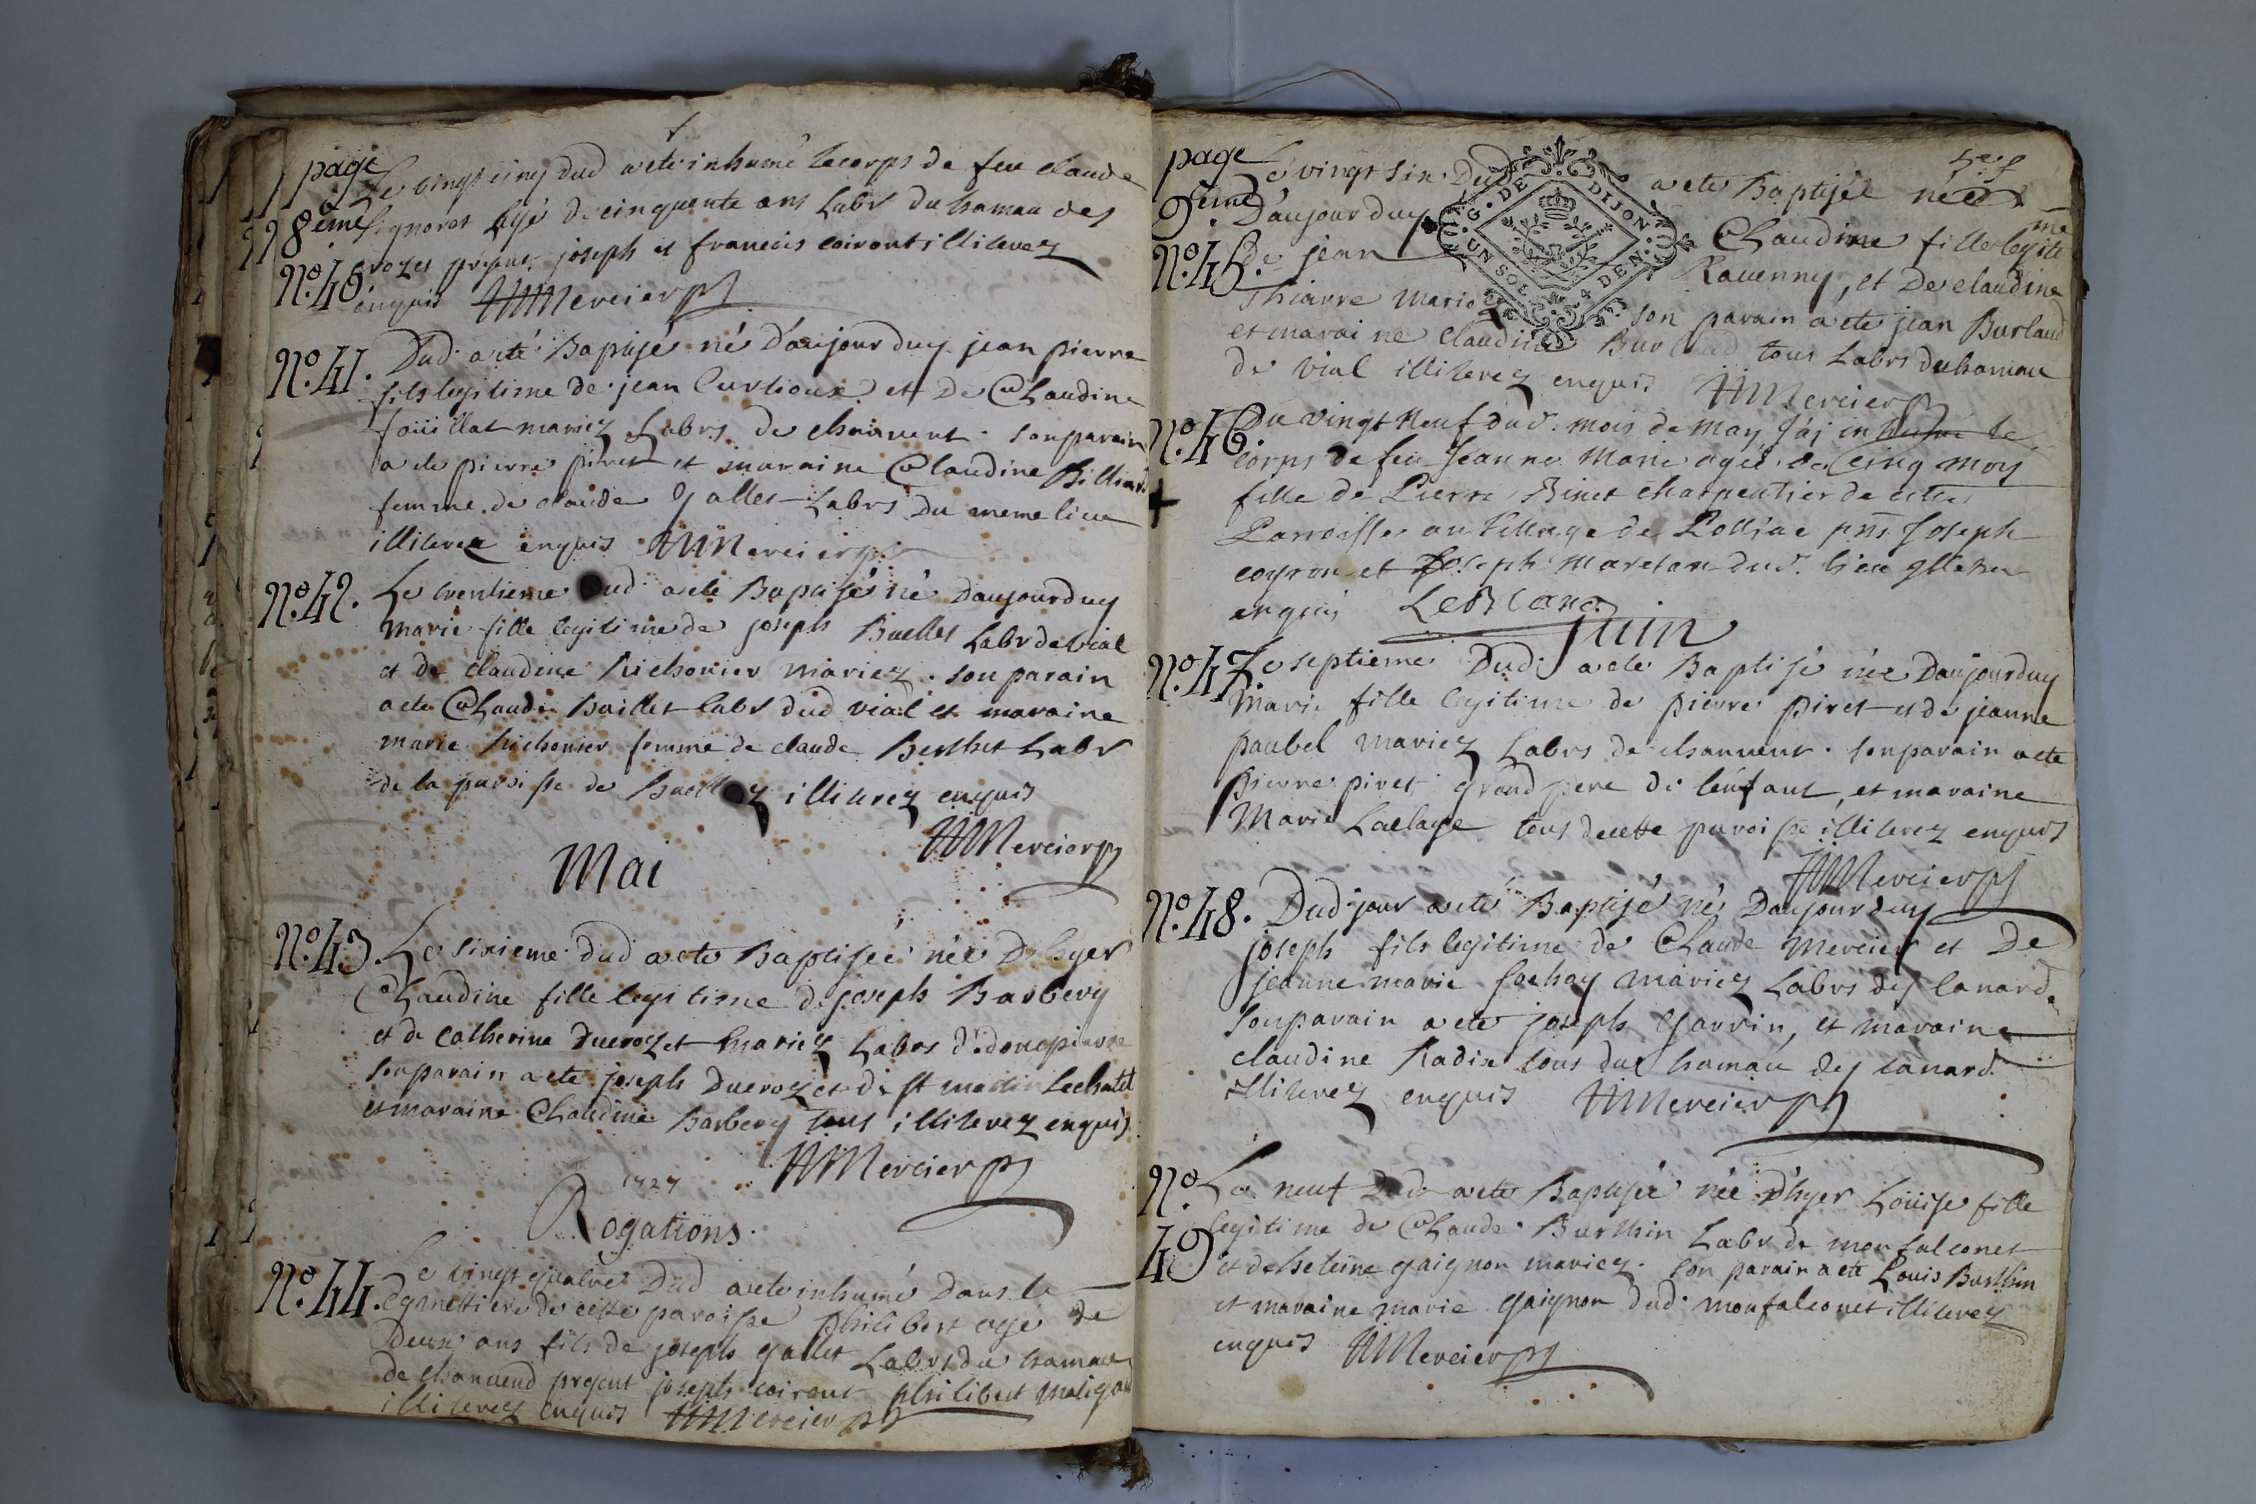 page
Le vingt cinq dud a ete inhumé le corps de feu claude
8eme
Signoret agé de cinquante ans Labr du hamau des
No. 40
royer present joseph et francois coiront illiterez
enquis Mercier
No. 41.
Dud a eté Baptisé né D'aujourduy jean pierre
fils legitime de jean Curtioux et De Claudine
foüillat mariez Labrs de chanvent . son parain
a ete pierre piret et maraine Claudine Billiard
femme de claude gallet Labrs Du meme lieu
illiterez enquis Mercier
No. 42.
Le trentieme Dud a ete Baptisé né Daujourduy
Marie fille legitime de joseph Buellet Labr de vial
et de claudine Richonier mariez . son parain
a ete Claude Buillet labr dud vial et maraine
marie Richonier femme de claude Berthet Labr
de la paroisse de illiterez enquis
Mercier
Mai
No. 43
Le sixieme dud a ete Baptisée née D'hyer
Claudine fille legitime de joseph Barbery
et de Catherine Ducrozet mariez Labrs de dompierre
son parain a ete joseph Ducrozet de st martin le chatel
et maraine Claudine Barbery tous illiterez enquis
Mercier
1727
Rogations.
No. 44.
Le vingt quatre Dud a ete inhumé Dans le
cymettiere de cette paroisse philibert agé de
Deux ans fils de joseph gallet Labr du hamau
de chanvend present joseph coiront philibert
illiterez enquis Mercier
page
Le vingt six Dud a ete Baptisée née
9eme
D'aujourduy Claudine fille legiti me
No. 45.
de jean Ravenny, et De claudine
G. DE DIJON
UN SOL 4 DEN.
Thiavre mariez son parain a ete jean Burlaud
et maraine Claudine Burlaud tous Labrs du hamau
de vial illiterez enquis Mercier
No. 46.
Du vingt neuf dud. mois de may j'ai inhumé le
corps de feu Jeanne Marie agée de Cinq moys
fille de Pierre Binet charpentier de cette
Parroisse au Village de Polliac pnts Joseph
coyron et Joseph Maretan dud. lieu
enquis LeBlanc
Juin
No. 47.
Le septieme Dud a ete Baptisé née Daujourduy
Marie fille legitime de pierre piret et de jeanne
paubel mariez Labrs de chanvent . son parain a ete
pierre piret grand pere de l'enfant, et maraine
Marie Laclaye tous de cette paroisse illiterez enquis
Mercier
No. 48.
Dud jour a eté Baptisé né Daujourduy
joseph fils legitime de Claude Mercier et De
jeanne marie fochay mariez Labrs des canard
son parain a ete joseph garrin, et maraine
claudine Radix tous du hamau des canard
illiterez enquis Mercier
No.
Le neuf Dud a ete Baptisée née d'hyer Loüise fille
legitime de Claude Burthin Labr de monfalconet
49
et de gaignon mariez. son parain a ete Louis Burthin
et maraine marie gaignon dud monfalconet illiterez
enquis Mercier